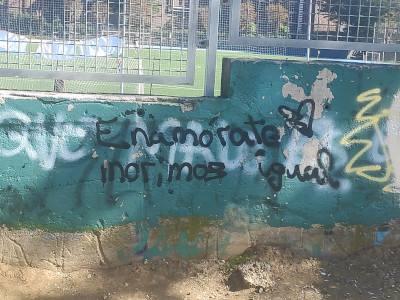 Enamórate
morimos igual